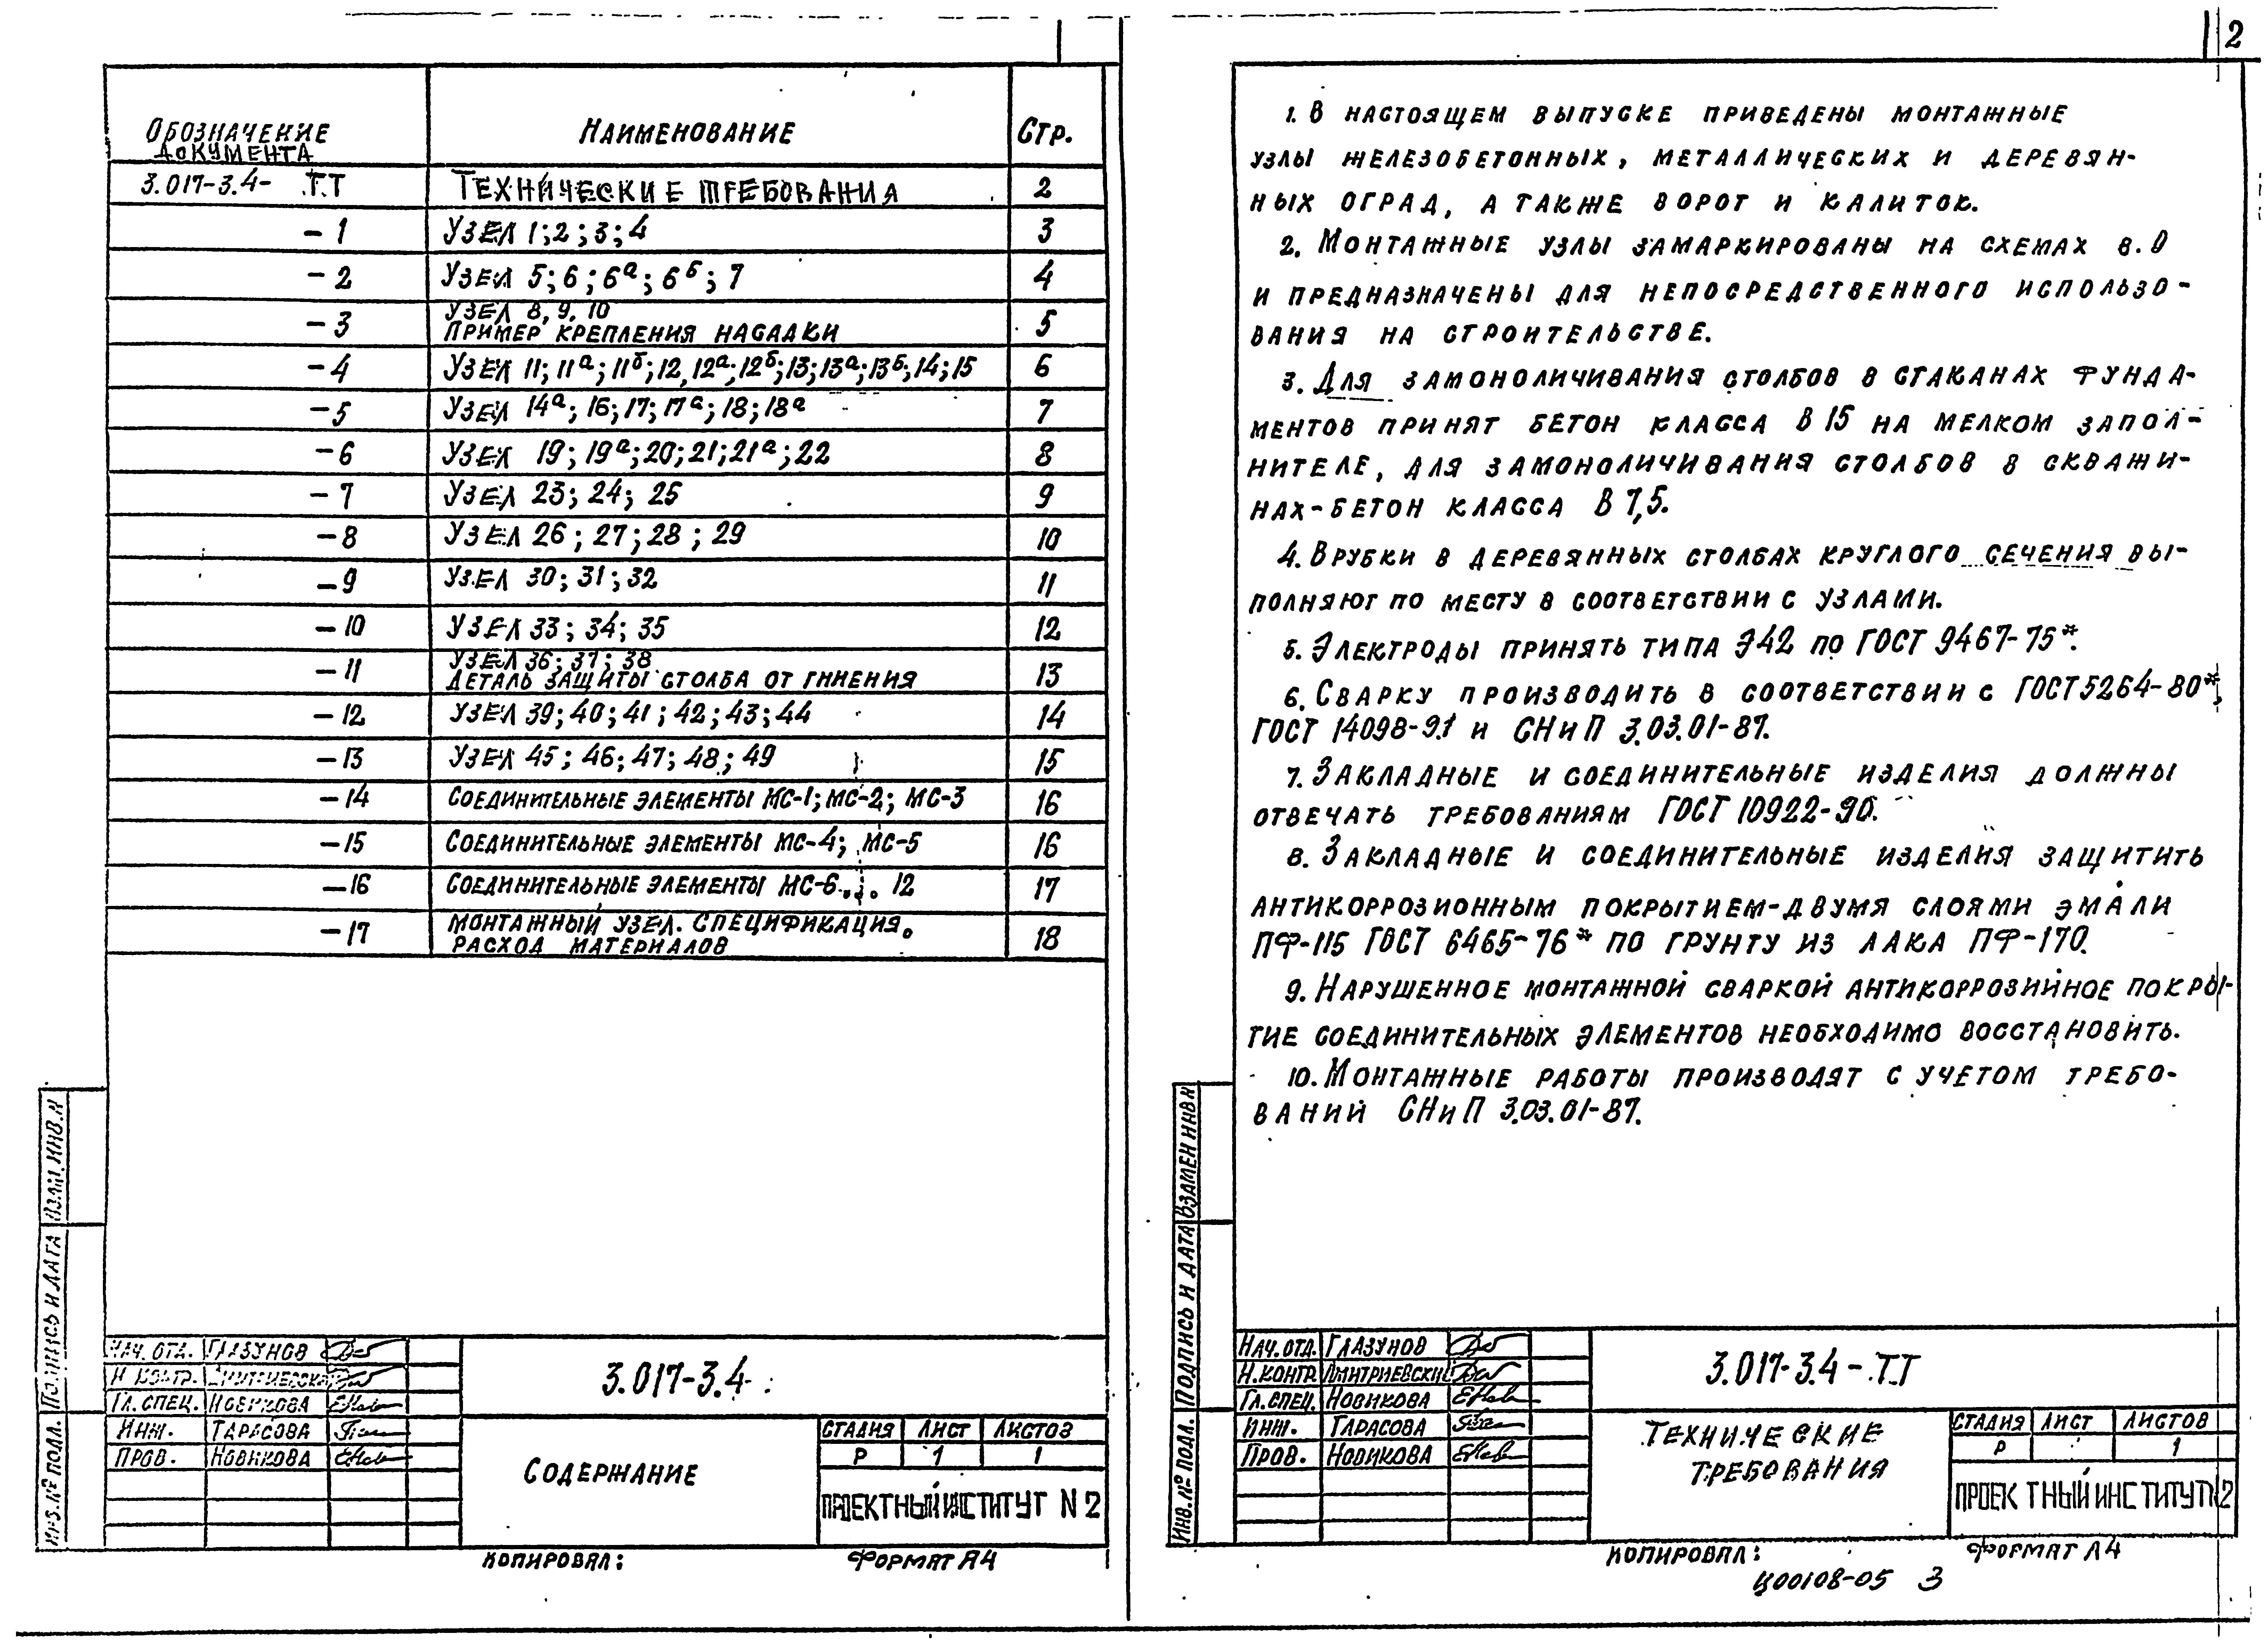 Обозначение документа Наименование Стр.
3.017-3.4- ТТ Технические требования 2
-1 Узел 1;2;3;4 3
-2 Узел 5;6;6а;6б;7 4
-3 Узел 8, 9, 10 Пример крепления насадки 5
-4 Узел 11;11а;11б;12,12а;12б;13;13а;13б;14;15 6
-5 Узел 14а;16;17;17а;18;18а 7
-6 Узел 19;19а;20;21;21а;22 8
-7 Узел 23; 24; 25 9
-8 Узел 26; 27; 28; 29 10
-9 Узел 30; 31; 32 11
-10 Узел 33; 34; 35 12
-11 Узел 36; 37; 38 Деталь защиты столба от гниения 13
-12 Узел 39; 40; 41; 42; 43; 44 14
-13 Узел 45; 46; 47; 48; 49 15
-14 Соединительные элементы МС-1; МС-2; МС-3 16
-15 Соединительные элементы МС-4; МС-5 16
-16 Соединительные элементы МС-6...12 17
-17 Монтажный узел. Спецификация. Расход материалов 18
Взам. инв. N
Подпись и дата
Инв. № подл.
Нач. отд. Глазунов
Н. контр. Дмитриевский
Гл. спец. Новикова
Инж. Тарасова
Пров. Новикова
3.017-3.4
Содержание
Стадия Лист Листов
Р 1 1
Проектный институт N 2
Копировал: Формат А4
2
1. В настоящем выпуске приведены монтажные
узлы железобетонных, металлических и деревян-
ных оград, а также ворот и калиток.
2. Монтажные узлы замаркированы на схемах в. 0
и предназначены для непосредственного использо-
вания на строительстве.
3. Для замоноличивания столбов в стаканах фунда-
ментов принят бетон класса В 15 на мелком запол-
нителе, для замоноличивания столбов в скважи-
нах-бетон класса В 7,5.
4. Врубки в деревянных столбах круглого сечения вы-
полняют по месту в соответствии с узлами.
5. Электроды принять типа Э42 по ГОСТ 9467-75*.
6. Сварку производить в соответствии с ГОСТ 5264-80*,
ГОСТ 14098-91 и СНиП 3.03.01-87.
7. Закладные и соединительные изделия должны
отвечать требованиям ГОСТ 10922-90.
8. Закладные и соединительные изделия защитить
антикоррозионным покрытием-двумя слоями эмали
ПФ-115 ГОСТ 6465-76* по грунту из лака ПФ-170.
9. Нарушенное монтажной сваркой антикоррозийное покры-
тие соединительных элементов необходимо восстановить.
10. Монтажные работы производят с учетом требо-
ваний СНиП 3.03.01-87.
Взамен инв N
Подпись и дата
Инв. № подл.
Нач. отд. Глазунов
Н. контр Дмитриевский
Гл. спец. Новикова
Инж. Тарасова
Пров. Новикова
3.017-3.4-ТТ
Технические
требования
Стадия Лист Листов
Р 1
Проектный институт №2
Копировал: Формат А4
Ц00108-05 3